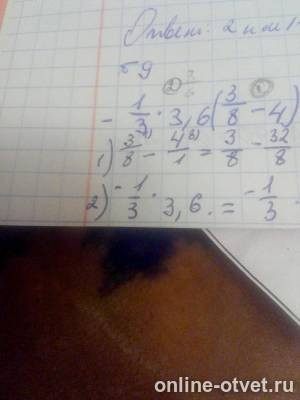 Ответ: 2 или 1
б 9
② ①
- 1/3 · 3,6 (3/8 - 4)
1) 3/8 - 4/1 = 3/8 - 32/8
2) - 1/3 · 3,6. = - 1/3
online-otvet.ru